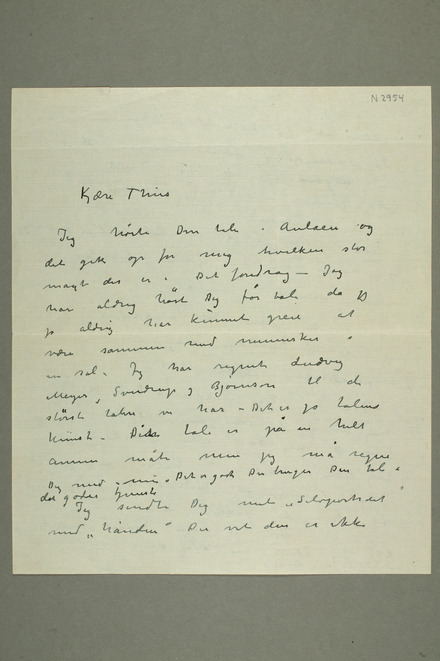 N 2954
Kjære Thiis
Jeg hørte Din tale i Aulaen og
det gik op for mig hvilken stor
magt der er i Det foredrag – Jeg
har aldrig hørt Dig før tale da jeg
jo aldrig har kunnet greie at
være sammen med mennesker i
en sal. Jeg har regnet Ludvig
Meyer, Sverdrup og Bjørnson til de
største talere vi har – Det er jo talens
kunst – Din tale er på en helt
annen måte men jeg må regne
Dig med – Det er godt Du bruger Din tale i
det godes tjeneste
Jeg sendte Dig mit „Selvportræt
med „hånden" Du vet den er ikke